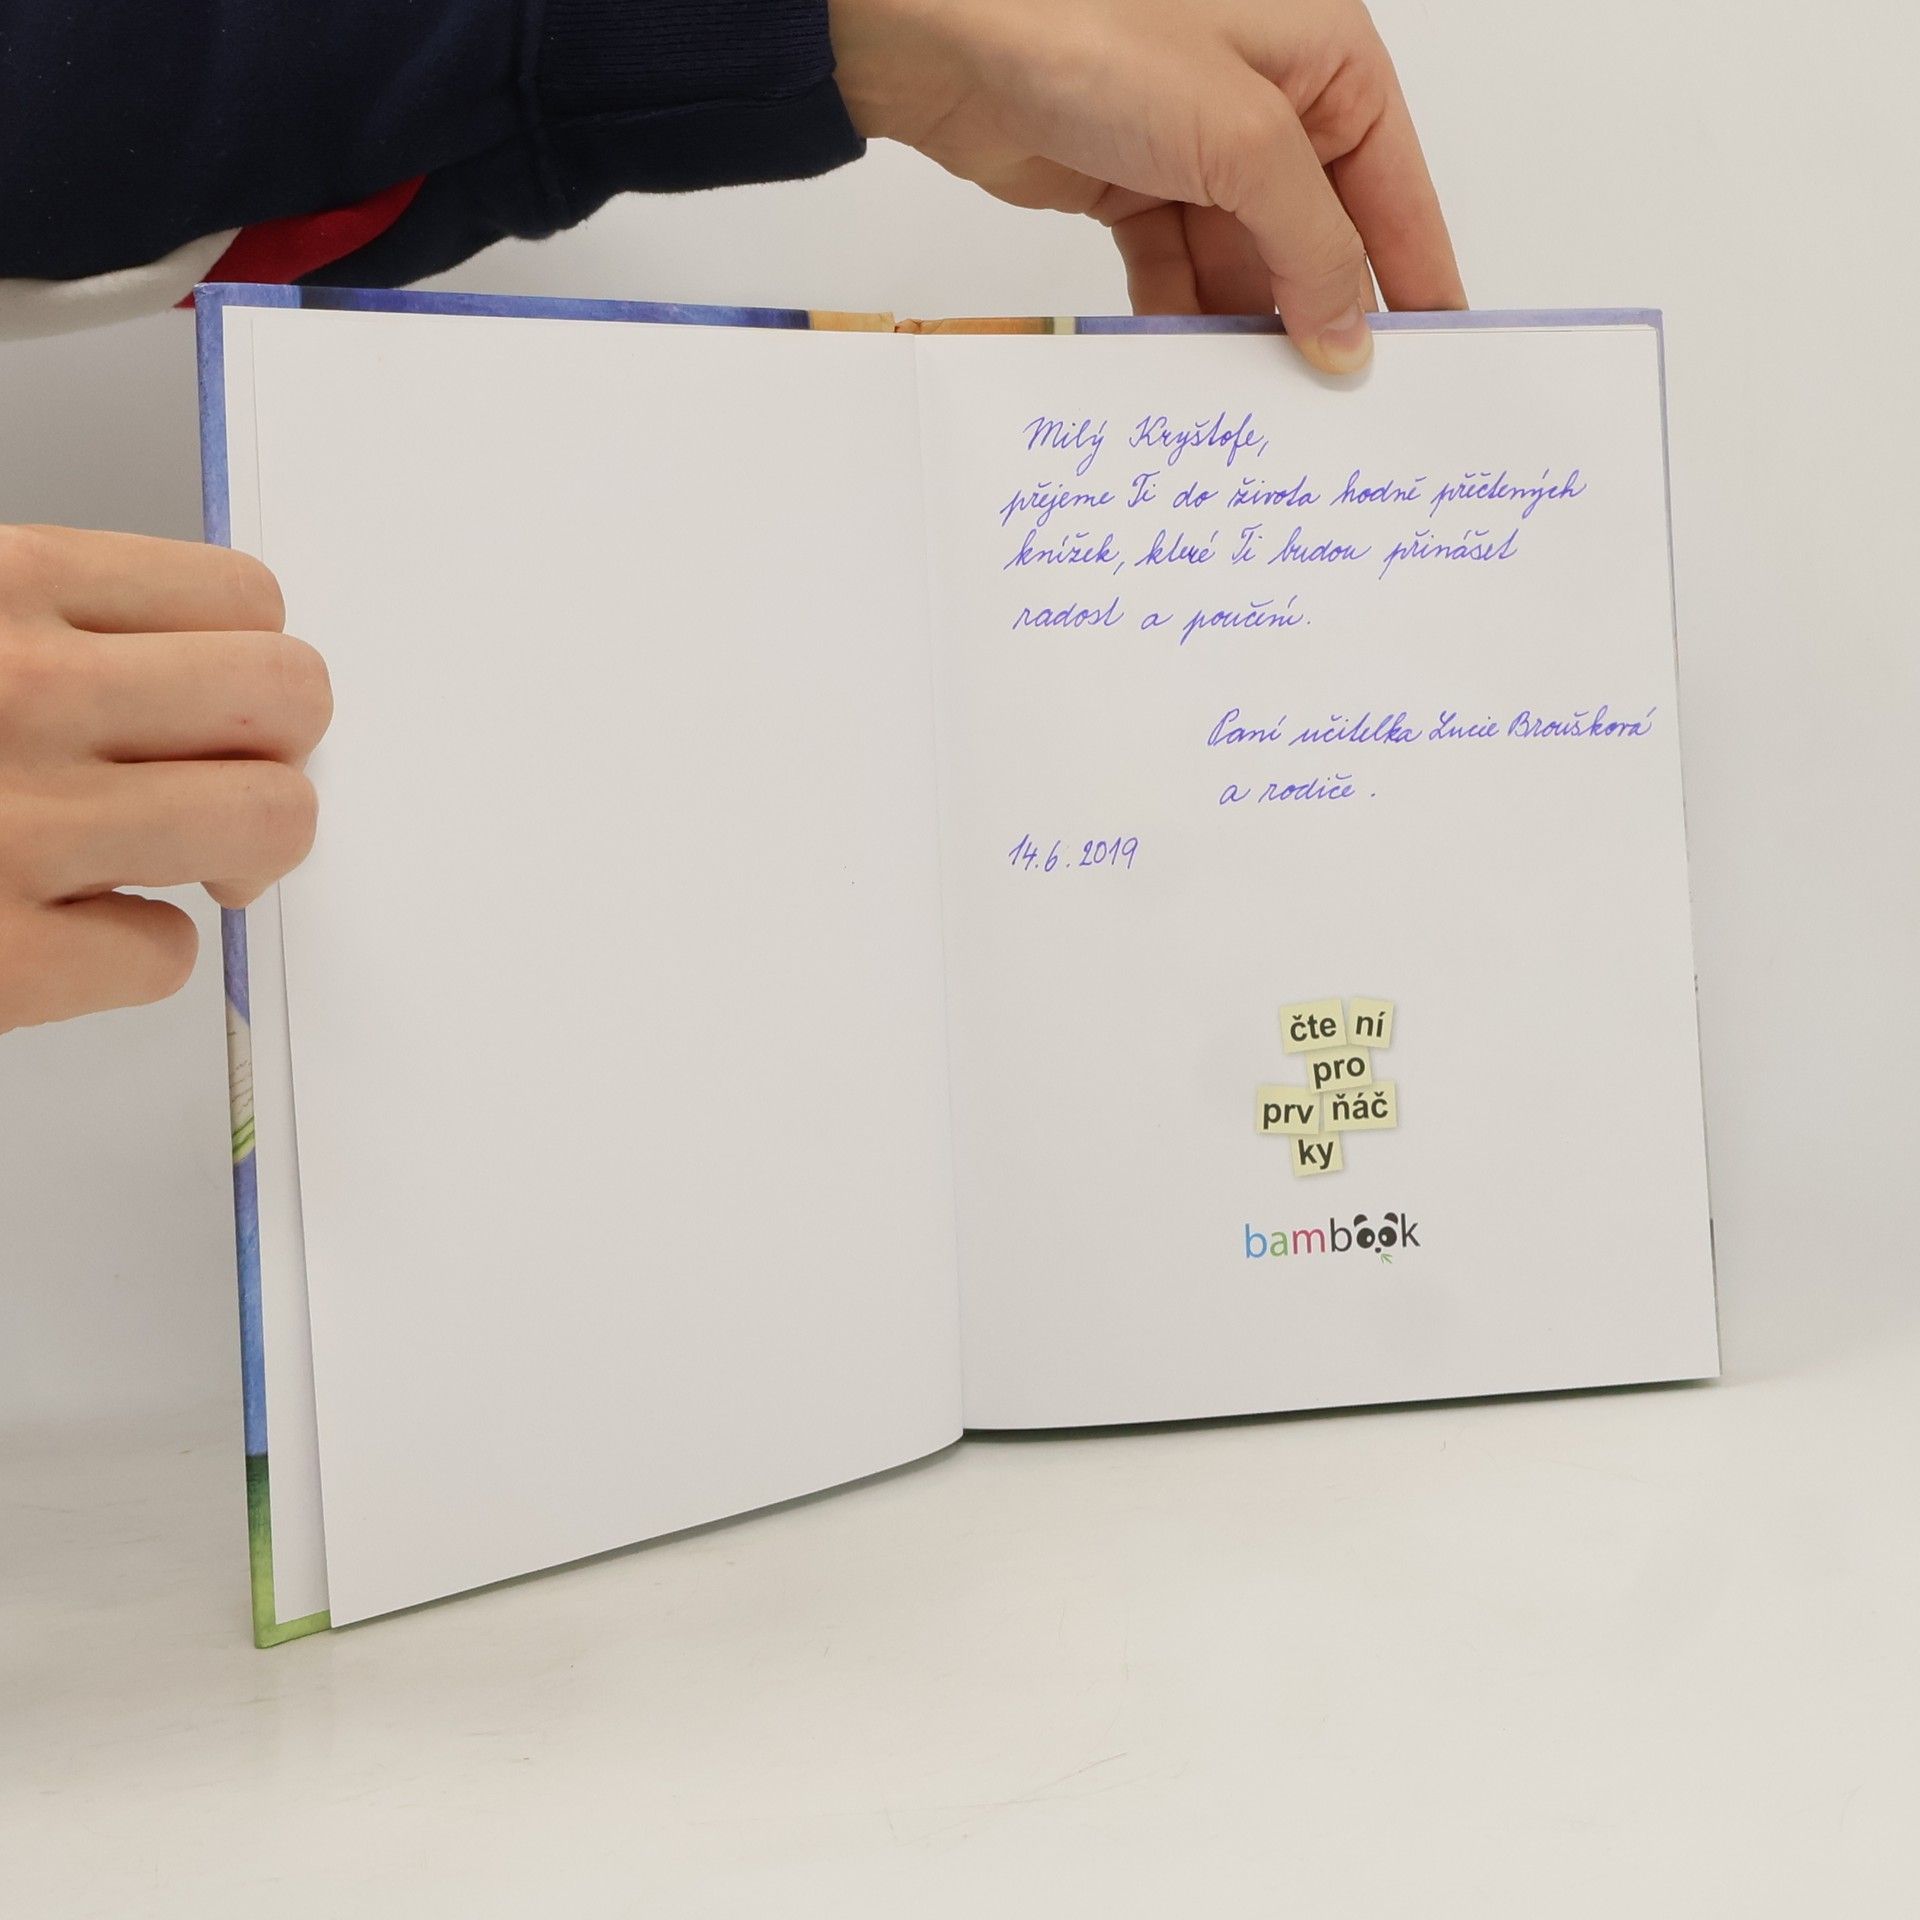 Milý Kryštofe,
přejeme Ti do života hodně přečtených
knížek, které Ti budou přinášet
radost a poučení.
Paní učitelka Lucie Broušková
a rodiče.
14.6.2019
čte ní
pro
prv ňáč
ky
bambook